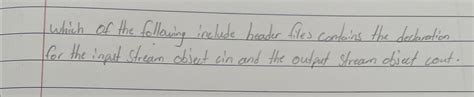 which of the following include header files contains the declaration
for the input stream object cin and the output stream object cout.